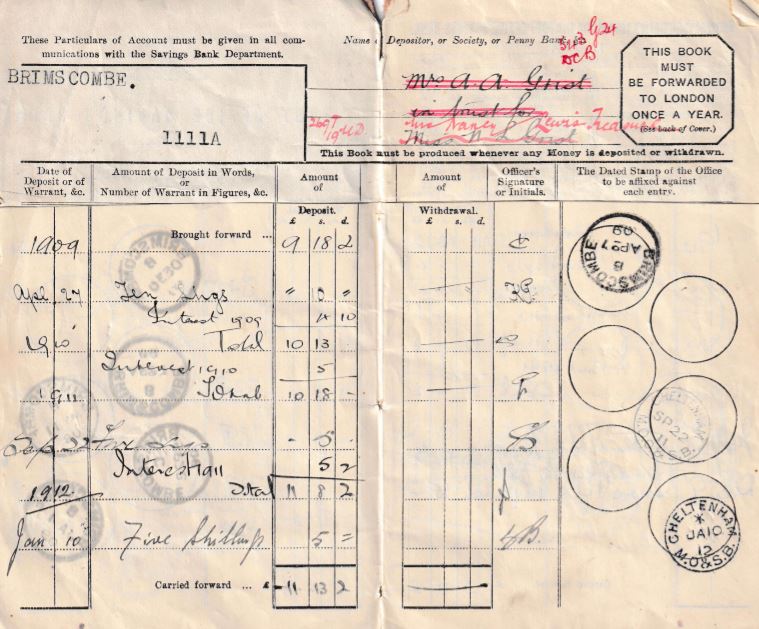 These Particulars of Account must be given in all com-
munications with the Savings Bank Department.
BRIMSCOMBE.
1111A
Name of Depositor, or Society, or Penny Bank, &c.
G24
DCB
Mrs A. A. Grist
in trust for
Miss Nancy L Lewis Treasurer
Miss N L Grist
THIS BOOK
MUST
BE FORWARDED
TO LONDON
ONCE A YEAR.
(See back of Cover.)
This Book must be produced whenever any Money is deposited or withdrawn.
Date of
Deposit or of
Warrant, &c.
Amount of Deposit in Words,
or
Number of Warrant in Figures, &c.
Amount
of
Deposit.
£ s. d.
Amount
of
Withdrawal.
£ s. d.
Officer's
Signature
or Initials.
The Dated Stamp of the Office
to be affixed against
each entry.
1909 Brought forward ... 9 18 2
Apl. 27 Ten Shgs " 10 "
Interest 1909 4 10
1910 Total 10 13 -
Interest 1910 5
1911 Total 10 18 -
Sep. 22 Five Shgs - 5 -
Interest 1911 5 2
1912. Total 11 8 2
Jan 10 Five Shillings 5 =
Carried forward ... £ 11 13 2
BRIMSCOMBE
B
AP 27
09
CHELTENHAM
SP 22
11
CHELTENHAM
JA 10
12
M.O & S.B.